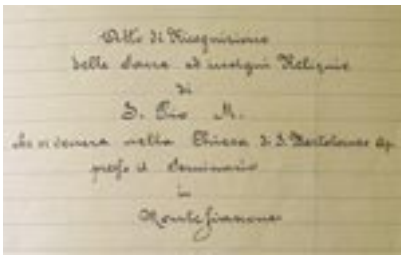 Atto di Ricognizione
delle Sacre ed insigni Reliquie
di
S. Pio M.
che si venera nella Chiesa di S. Bartolomeo Ap.
presso il Seminario
in
Montefiascone